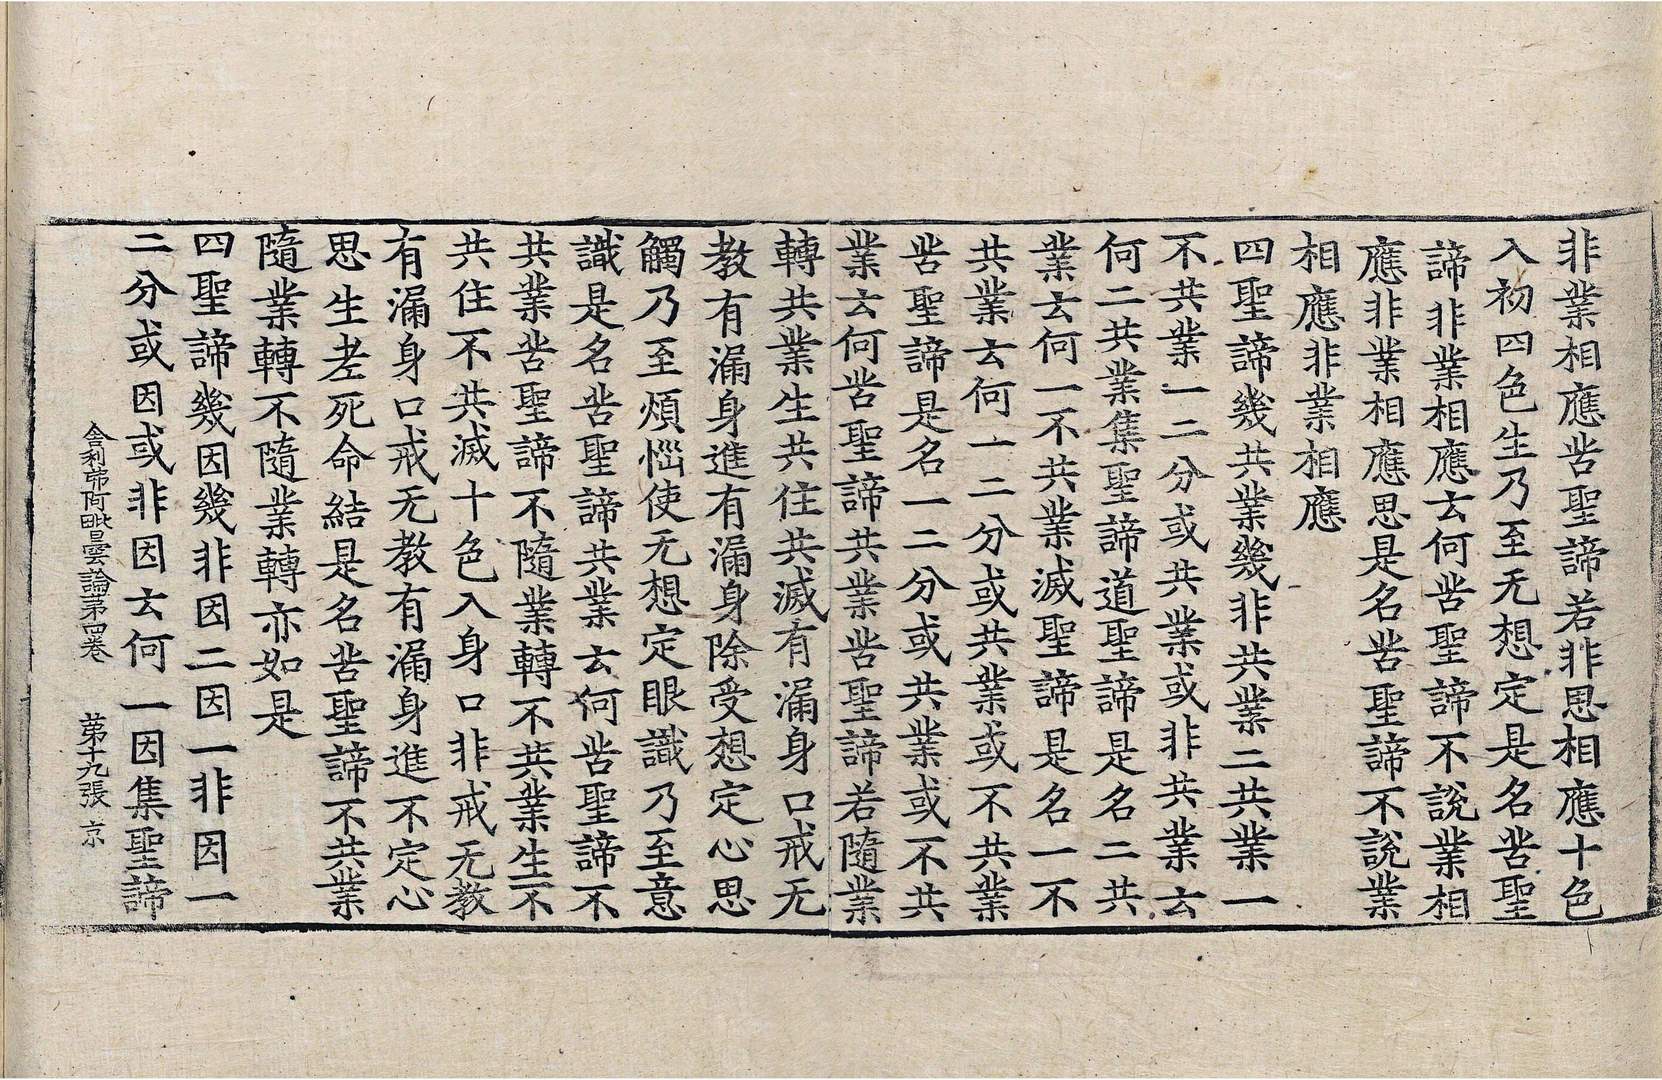 非業相應苦聖諦若非思相應十色
入初四色生乃至无想定是名苦聖
諦非業相應云何苦聖諦不說業相
應非業相應思是名苦聖諦不說業
相應非業相應
四聖諦幾共業幾非共業二共業一
不共業一二分或共業或非共業云
何二共業集聖諦道聖諦是名二共
業云何一不共業滅聖諦是名一不
共業云何一二分或共業或不共業
苦聖諦是名一二分或共業或不共
業云何苦聖諦共業苦聖諦若隨業
轉共業生共住共滅有漏身口戒无
教有漏身進有漏身除受想定心思
觸乃至煩惱使无想定眼識乃至意
識是名苦聖諦共業云何苦聖諦不
共業苦聖諦不隨業轉不共業生不
共住不共滅十色入身口非戒无教
有漏身口戒无教有漏身進不定心
思生老死命結是名苦聖諦不共業
隨業轉不隨業轉亦如是
四聖諦幾因幾非因二因一非因一
二分或因或非因云何一因集聖諦
舍利弗阿毗曇論第四卷 第十九張 京